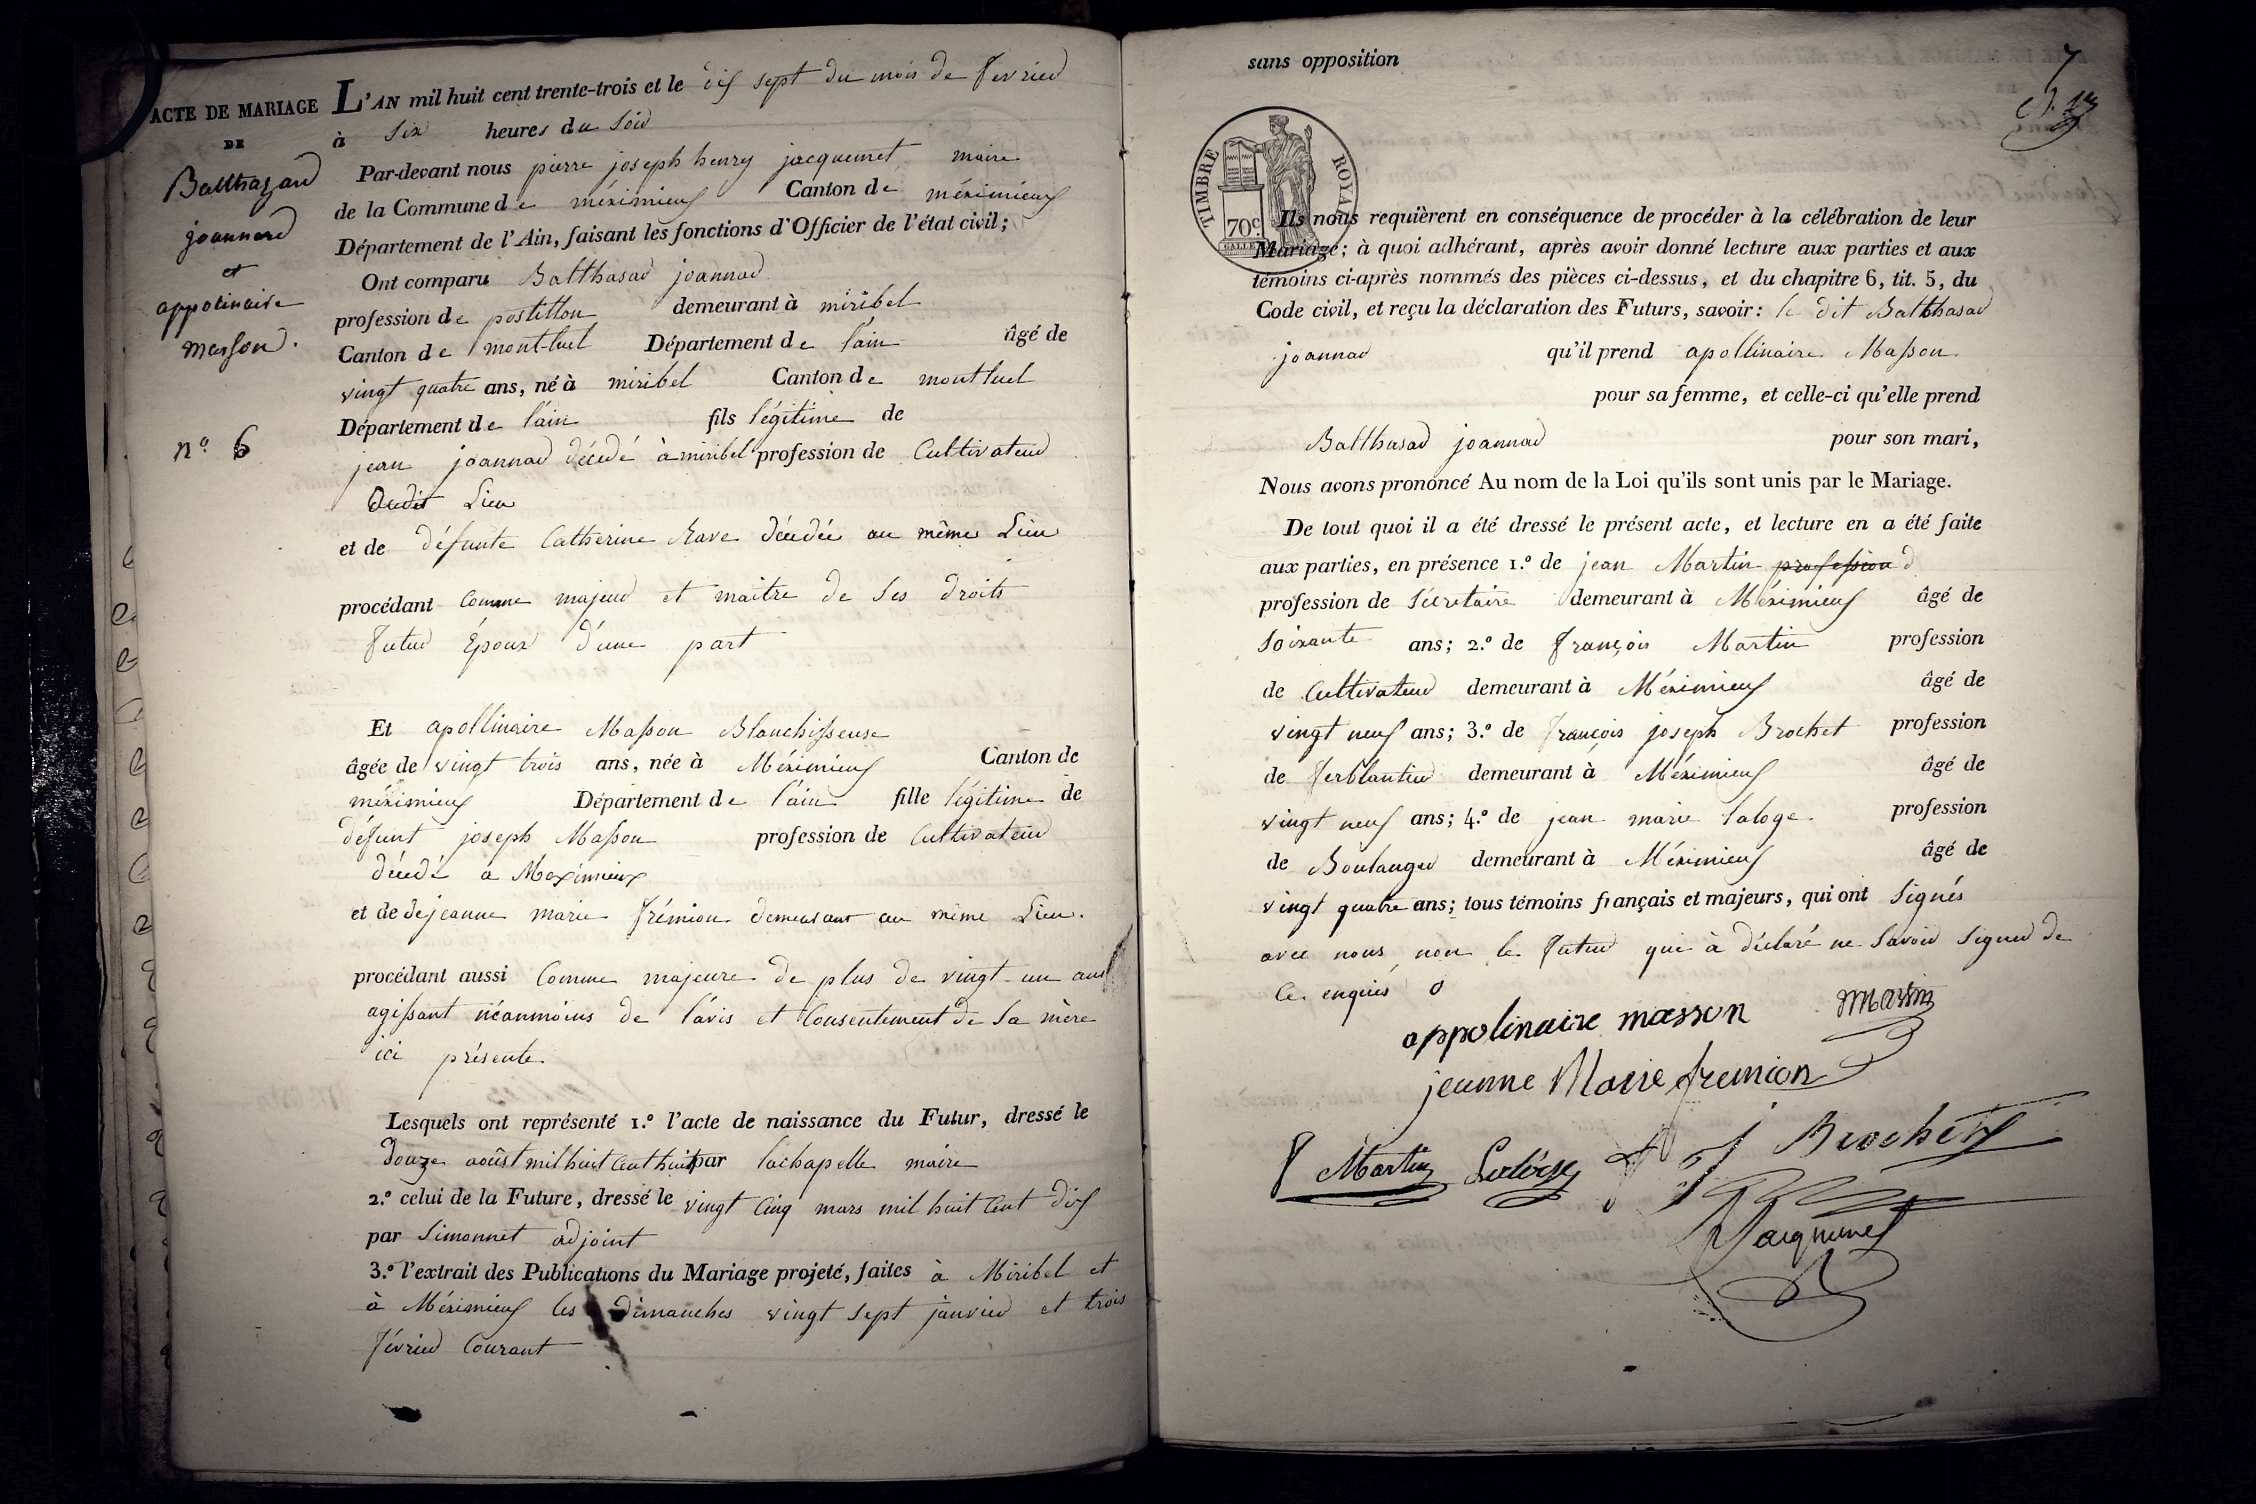 ACTE DE MARIAGE
DE
Balthazard
joannard
et
appolinaire
masson.
n.º 6
L'AN mil huit cent trente-trois et le dix sept du mois de fevrier
à six heures du soir
Par-devant nous pierre joseph henry jacquemet maire
de la Commune de méximieux Canton de méximieux
Département de l'Ain, faisant les fonctions d'Officier de l'état civil;
Ont comparu Balthasar joannar
profession de postillon demeurant à miribel
Canton de mont-luel Département de l'ain âgé de
vingt quatre ans, né à miribel Canton de montluel
Département de l'ain fils légitime de
jean joannar décédé à miribel profession de Cultivateur
Dudit Lieu
et de défunte Catherine Rave décédée au même Lieu
procédant comme majeur et maitre de ses droits
futur Époux d'une part
Et apollinaire Masson Blanchisseuse
âgée de vingt trois ans, née à Méximieux Canton de
méximieux Département de l'ain fille légitime de
défunt joseph Masson profession de Cultivateur
décédé a Meximieux
et de jeanne marie frémion demeurant au même Lieu.
procédant aussi Comme majeure de plus de vingt-un ans
agissant néanmoins de l'avis et Consentement de sa mère
ici présente
Lesquels ont représenté 1.º l'acte de naissance du Futur, dressé le
douze août mil huit cent huit par lachapelle maire
2.º celui de la Future, dressé le vingt cinq mars mil huit cent dix
par Simonnet adjoint
3.º l'extrait des Publications du Mariage projeté, faites à Miribel et
à Méximieux les dimanches vingt sept janvier et trois
février Courant
sans opposition
7
TIMBRE ROYAL
70c.
Ils nous requièrent en conséquence de procéder à la célébration de leur
Mariage; à quoi adhérant, après avoir donné lecture aux parties et aux
témoins ci-après nommés des pièces ci-dessus, et du chapitre 6, tit. 5, du
Code civil, et reçu la déclaration des Futurs, savoir: le dit Balthasar
joannar qu'il prend apollinaire Masson
pour sa femme, et celle-ci qu'elle prend
Balthasar joannar pour son mari,
Nous avons prononcé Au nom de la Loi qu'ils sont unis par le Mariage.
De tout quoi il a été dressé le présent acte, et lecture en a été faite
aux parties, en présence 1.º de jean Martin profession d
profession de Sécretaire demeurant à Méximieux âgé de
soixante ans; 2.º de françois Martin profession
de Cultivateur demeurant à Méximieux âgé de
vingt neuf ans; 3.º de françois joseph Brochet profession
de ferblantier demeurant à Méximieux âgé de
vingt neuf ans; 4.º de jean marie laloge profession
de Boulanger demeurant à Méximieux âgé de
vingt quatre ans; tous témoins français et majeurs, qui ont signés
avec nous, non le futur qui à déclaré ne savoir signer de
ce enquis
appolinaire masson Martin
jeanne Marie fremion
f Martin Laloge f J Brochet
Jacquemet